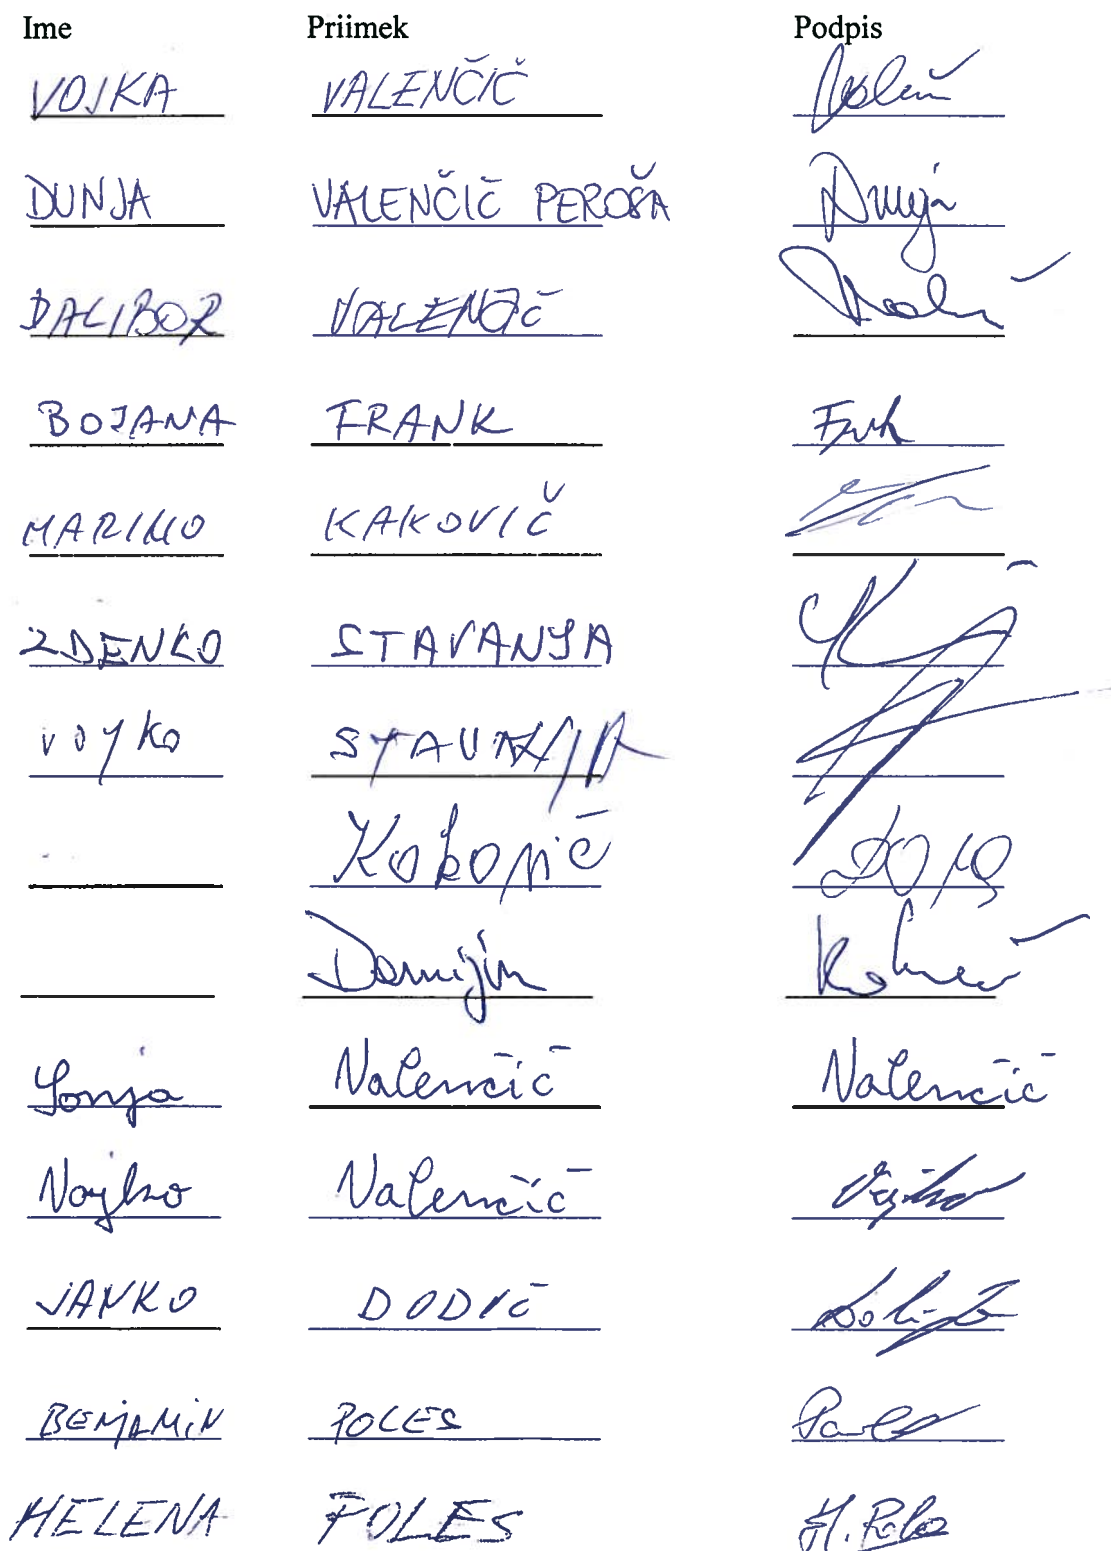 Ime Priimek Podpis
VOJKA VALENČIČ
DUNJA VALENČIČ PEROŠA Dunja
DALIBOR VALENČIČ
BOJANA FRANK
MARINO KAKOVIČ
ZDENKO STAVANJA
VOJKO STAVANJA
Damijan
Sonja Valenčič Valenčič
Vojko Valenčič Vojko
JANKO DODIČ
BENJAMIN POLES
HELENA POLES H. Poles